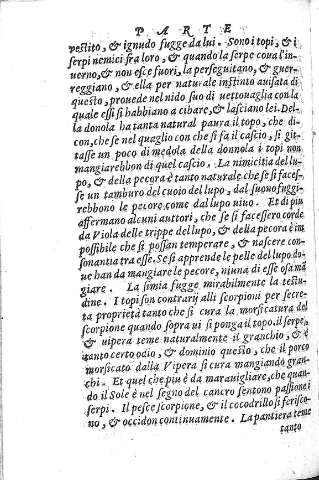 PARTE
vestito, & ignudo fugge da lui. Sono i topi, & i
serpi nemici fra loro, & quando la serpe cova l'in-
uerno, & non esce fuori, la perseguitano, & guer-
reggiano, & ella per naturale instinto auisata di
questo, prouede nel nido suo di uettouaglia con la
quale essi si habbiano a cibare, & lasciano lei. Del-
la donola ha tanta natural paura il topo, che di-
con, che se nel quaglio con che si fa il cascio, si git-
tasse un poco di medola della donnola i topi non
mangiarebbon di quel cascio. La nimicitia del lu-
po, & della pecora è tanto naturale che se si faces-
se un tamburo del cuoio del lupo, dal suono fuggi
rebbono le pecore come dal lupo uiuo. Et di piu
affermano alcuni auttori, che se si facessero corde
da Viola delle trippe del lupo, & della pecora è im
possibile che si possan temperare, & nascere con-
sonantia tra esse. Se si apprende le pelle del lupo do
ue han da mangiare le pecore, niuna di esse osa mã
giare. La simia fugge mirabilmente la testu-
dine. I topi son contrarij alli scorpioni per secre-
ta proprietà tanto che si cura la morsicatura del
scorpione quando sopra ui si ponga il topo. il serpe,
& uipera teme naturalmente il granchio, & è
tanto certo odio, & dominio questo, che il porco
morsicato dalla Vipera si cura mangiando gran-
chi. Et quel che piu è da marauigliare, che quan-
do il Sole è nel segno del cancro sentono passione i
serpi. Il pesce scorpione, & il cocodrillo si ferisco-
no, & occidon continuamente. La pantiera teme
tanto